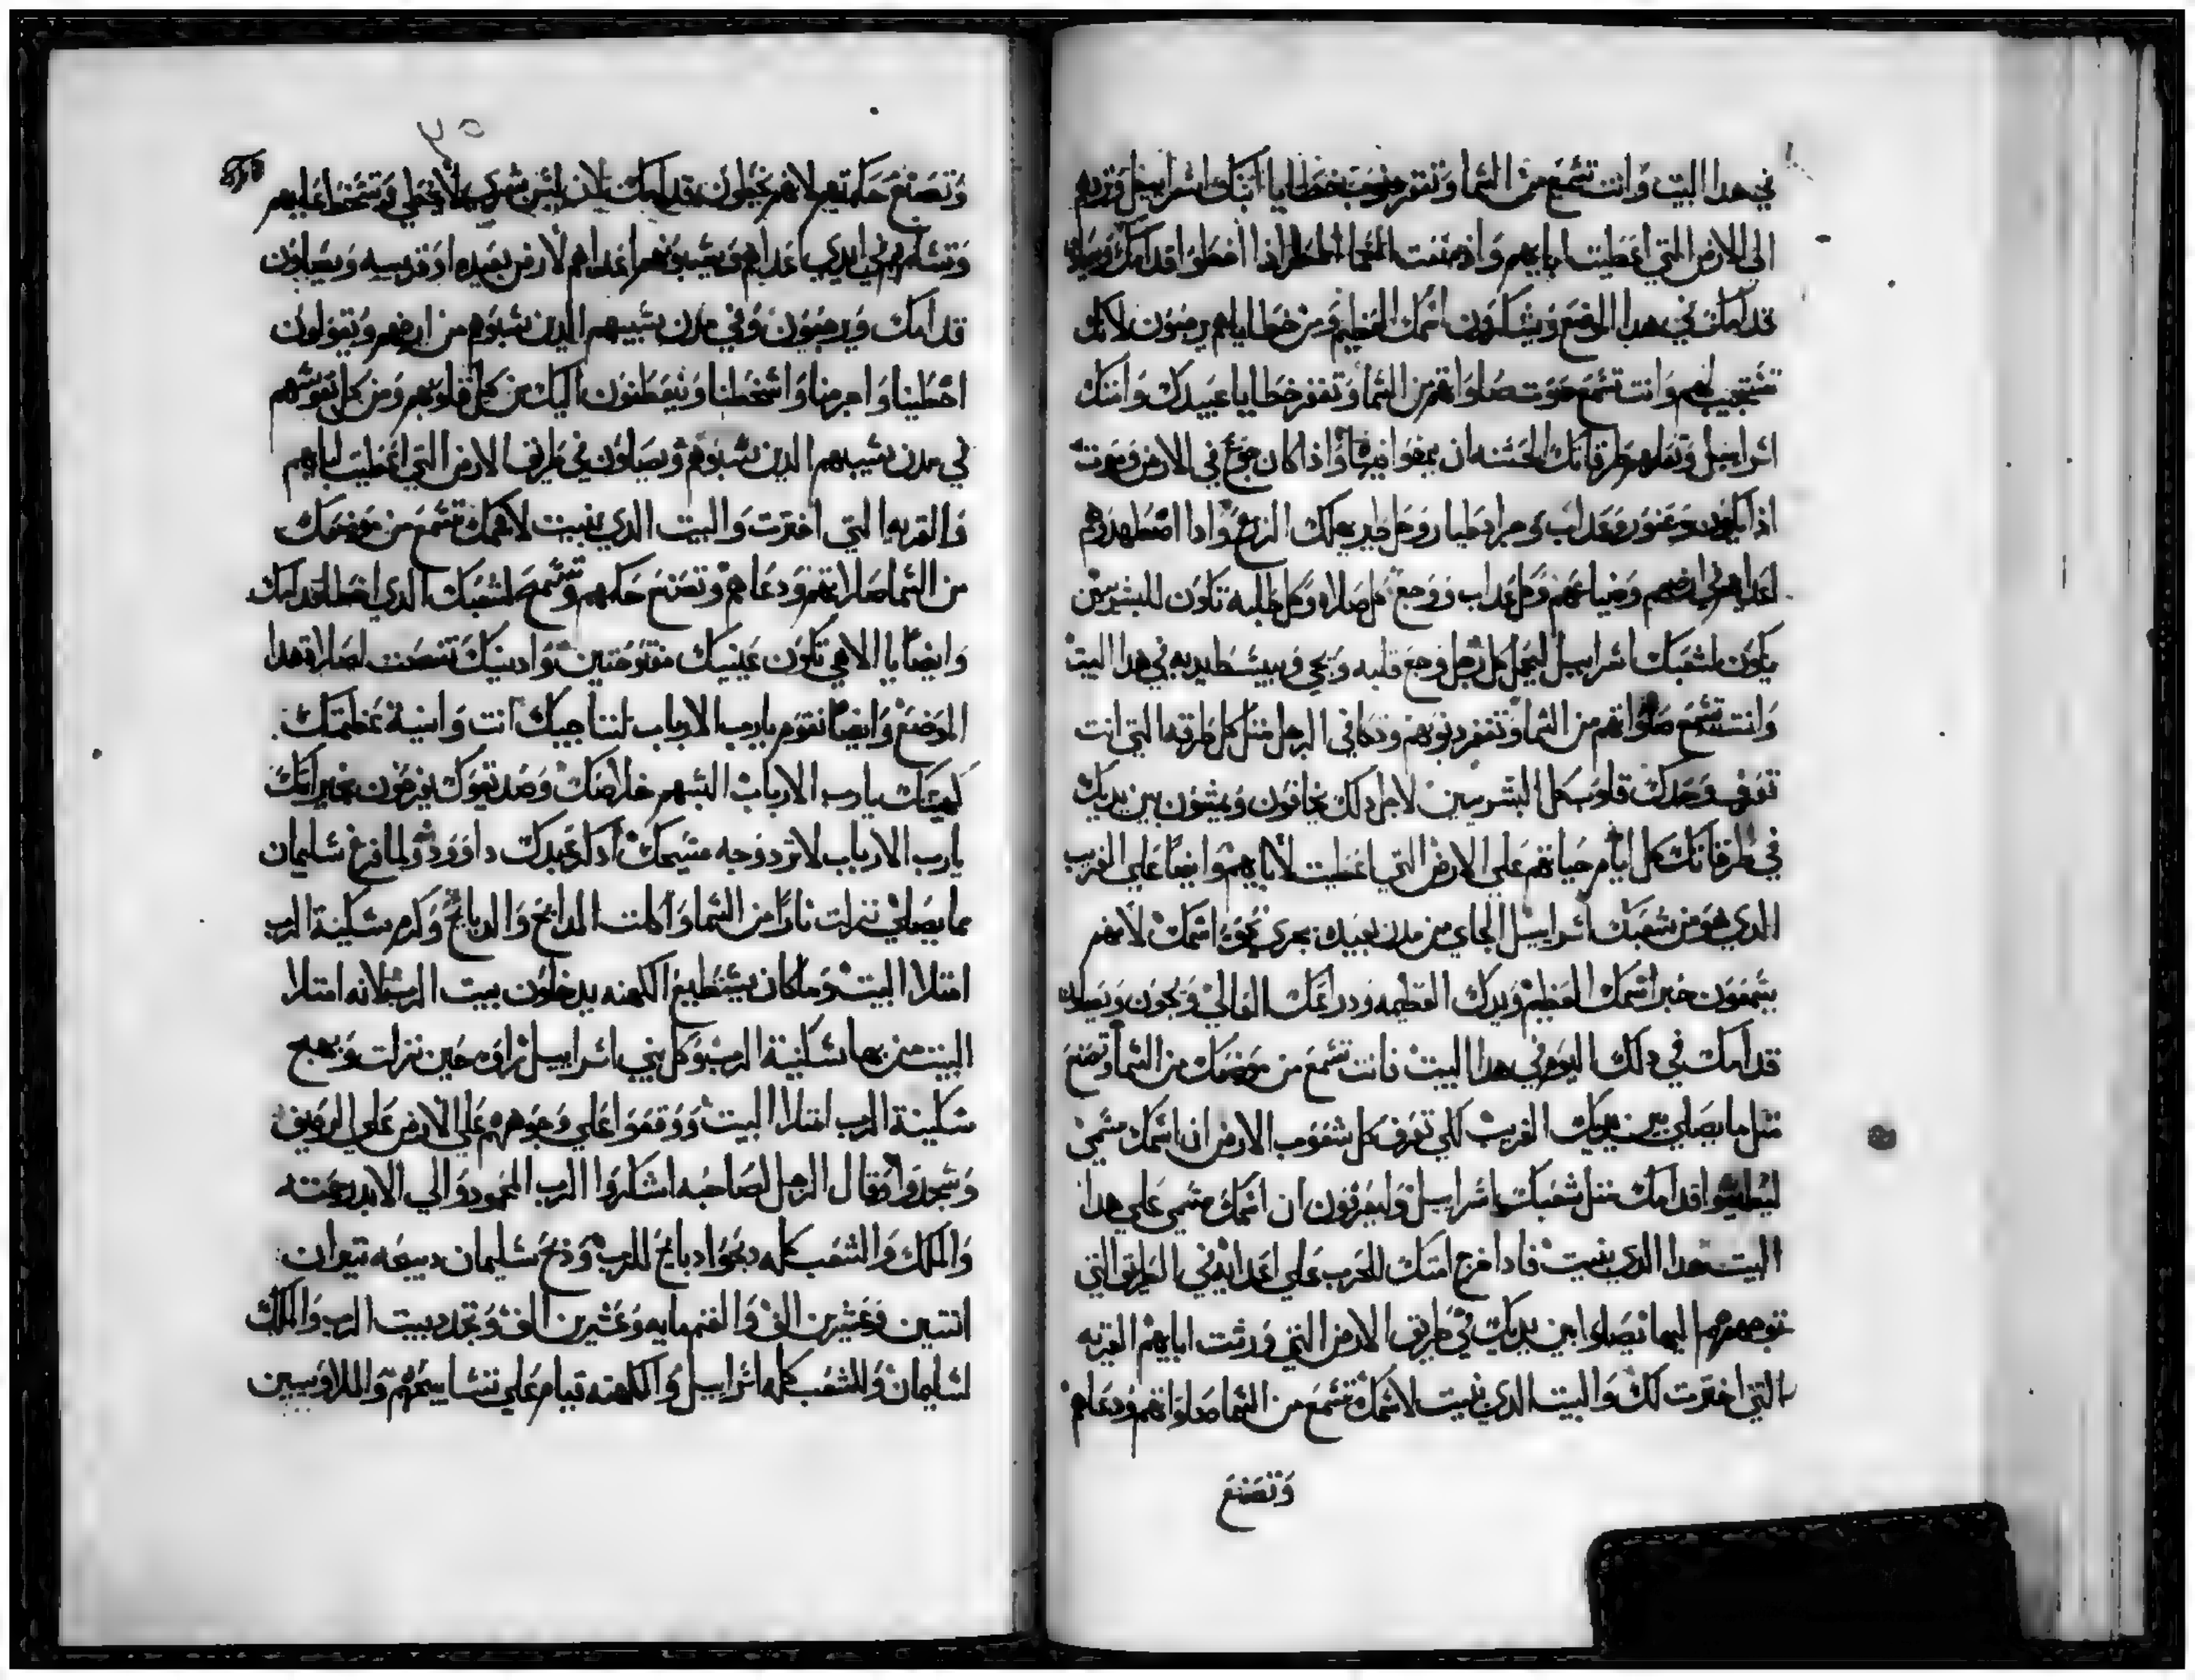 في هدا البيت وانت تسمع من السما وتغفر دنوب خطايا ابنك اسراييل وتردهم
الى الارض التي اعطيت ابايهم واد منعت السما المطر اذا اخطوا قدامك ويصلون
قدامك في هدا الموضع ويشكرون اسمك العظيم ومن خطاياهم يرجعون لانك
تستجيب لهم وانت تسمع صوت صلواتهم من السما وتغفر خطايا عبيدك وامتك
اسراييل وتعلمهم طرقاتك الحسنه ان يمضوا فيها واذا كان جوع في الارض وموت
اذا يكون وعذاب وجراد طيار يهلك الزرع وادا اضطهدوهم
اعداهم في ارضهم وضياعهم وكل عداب ووجع كل صلاه وكل طلبه تكون للبشريين
يكون لشعبك اسراييل ليعمل كل رجل وجع قلبه ويجي ويبسط يديه في هدا البيت
وانت تسمع صلواتهم من السما وتغفر دنوبهم وتكافي الرجل مثل كل طرقه التي انت
تعرف وحدك قلوب كل البشريين لاجل دلك يخافون ويمشون بين يديك
في طرقاتك كل ايام حياتهم على الارض التي اعطيت لابايهم وايضا علي الغريب
الدي هو من شعبك اسراييل الجاي من مدن بعيده يجري نحو اسمك لانهم
يسمعون خبر اسمك العظيم ويدك العظيمه ودراعك العالي ويجون ويصلون
قدامك في دلك اليوم في هدا البيت فانت تسمع من موضعك من السما وتصنع
مثل ما يصلي بين يديك الغريب لكي تعرف كل شعوب الارض ان اسمك سمي
ليعطوا قدامك مثل شعبك اسراييل وليعرفون ان اسمك سمي علي هدا
البيت هدا الدي بنيت فادا خرج امتك للحرب علي اعدايه في الطريق التي
توجههم اليها يصلوا بين يديك في طريق الارض التي ورثت ابايهم القريه
التي اخترت لك والبيت الدي بنيت لاسمك تسمع من السما صلواتهم ودعاهم
وتصنع
وتصنع حكمتهم لانهم يخطون قدامك لان ليس بشري لا يخطي وتسخط عليهم
وتسلمهم في ايدي اعداهم ويسبيهم اعداهم لارض بعيده او قريبه ويصلون
قدامك ويرجعون وفي مدن سبيهم الدين سبوهم من ارضهم ويقولون
اخطينا واجرمنا واسخطنا وينعطفون اليك من كل قلوبهم ومن كل نفوسهم
في مدن سبيهم الدين سبوهم ويصلون في طريق الارض التي اعطيت اباهم
والقريه التي اخترت والبيت الدي بنيت لاسمك تسمع من موضعك
من السما صلاتهم ودعاهم وتصنع حكمهم وتسمح لشعبك الدي اخطا قدامك
وايضا يا الاهي تكون عينيك مفتوحتين وادنيك تنصت لصلاة هدا
الموضع وايضا نقوم يارب الارباب لنناجيك انت وانية عظمتك
كهنتك يارب الارباب البسهم خلاصك وصديقوك يفرحون بخيراتك
يارب الارباب لا ترد وجه مسيحك ادكر عبدك داوود ولما فرغ سليمان
مما يصلي نزلت نارا من السما واكلت المدابح والدبايح وكرم سكينة الرب
امتلا البيت وما كان يستطيع الكهنه يدخلون بيت الرب لانه امتلا
البيت من بها سكينة الرب وكل بني اسراييل راوه حين نزلت وبهج
سكينة الرب امتلا البيت ووقعوا علي وجوههم علي الارض علي الرصيف
وسجدوا وقال الرجل لصاحبه اشكروا الرب المحمود والي الابد رحمته
والملك والشعب كله دبحوا دبايح للرب ودبح سليمان دبيحه تيران
اتنين وعشرين الف والغنم مايه وعشرين الف وتجدد بيت الرب والملك
سليمان والشعب كله اسراييل والكهنه قيام علي تسابيحهم واللاويين